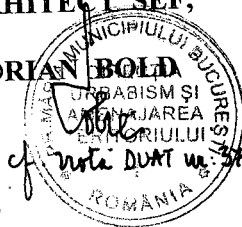 ARHITECT ȘEF,
ORIAN BOLD
MUNICIPIULUI BUCUREȘTI
URBABISM ȘI
AMENAJAREA
TERITORIULUI
cf. notă DUAT nr.
ROMÂNIA